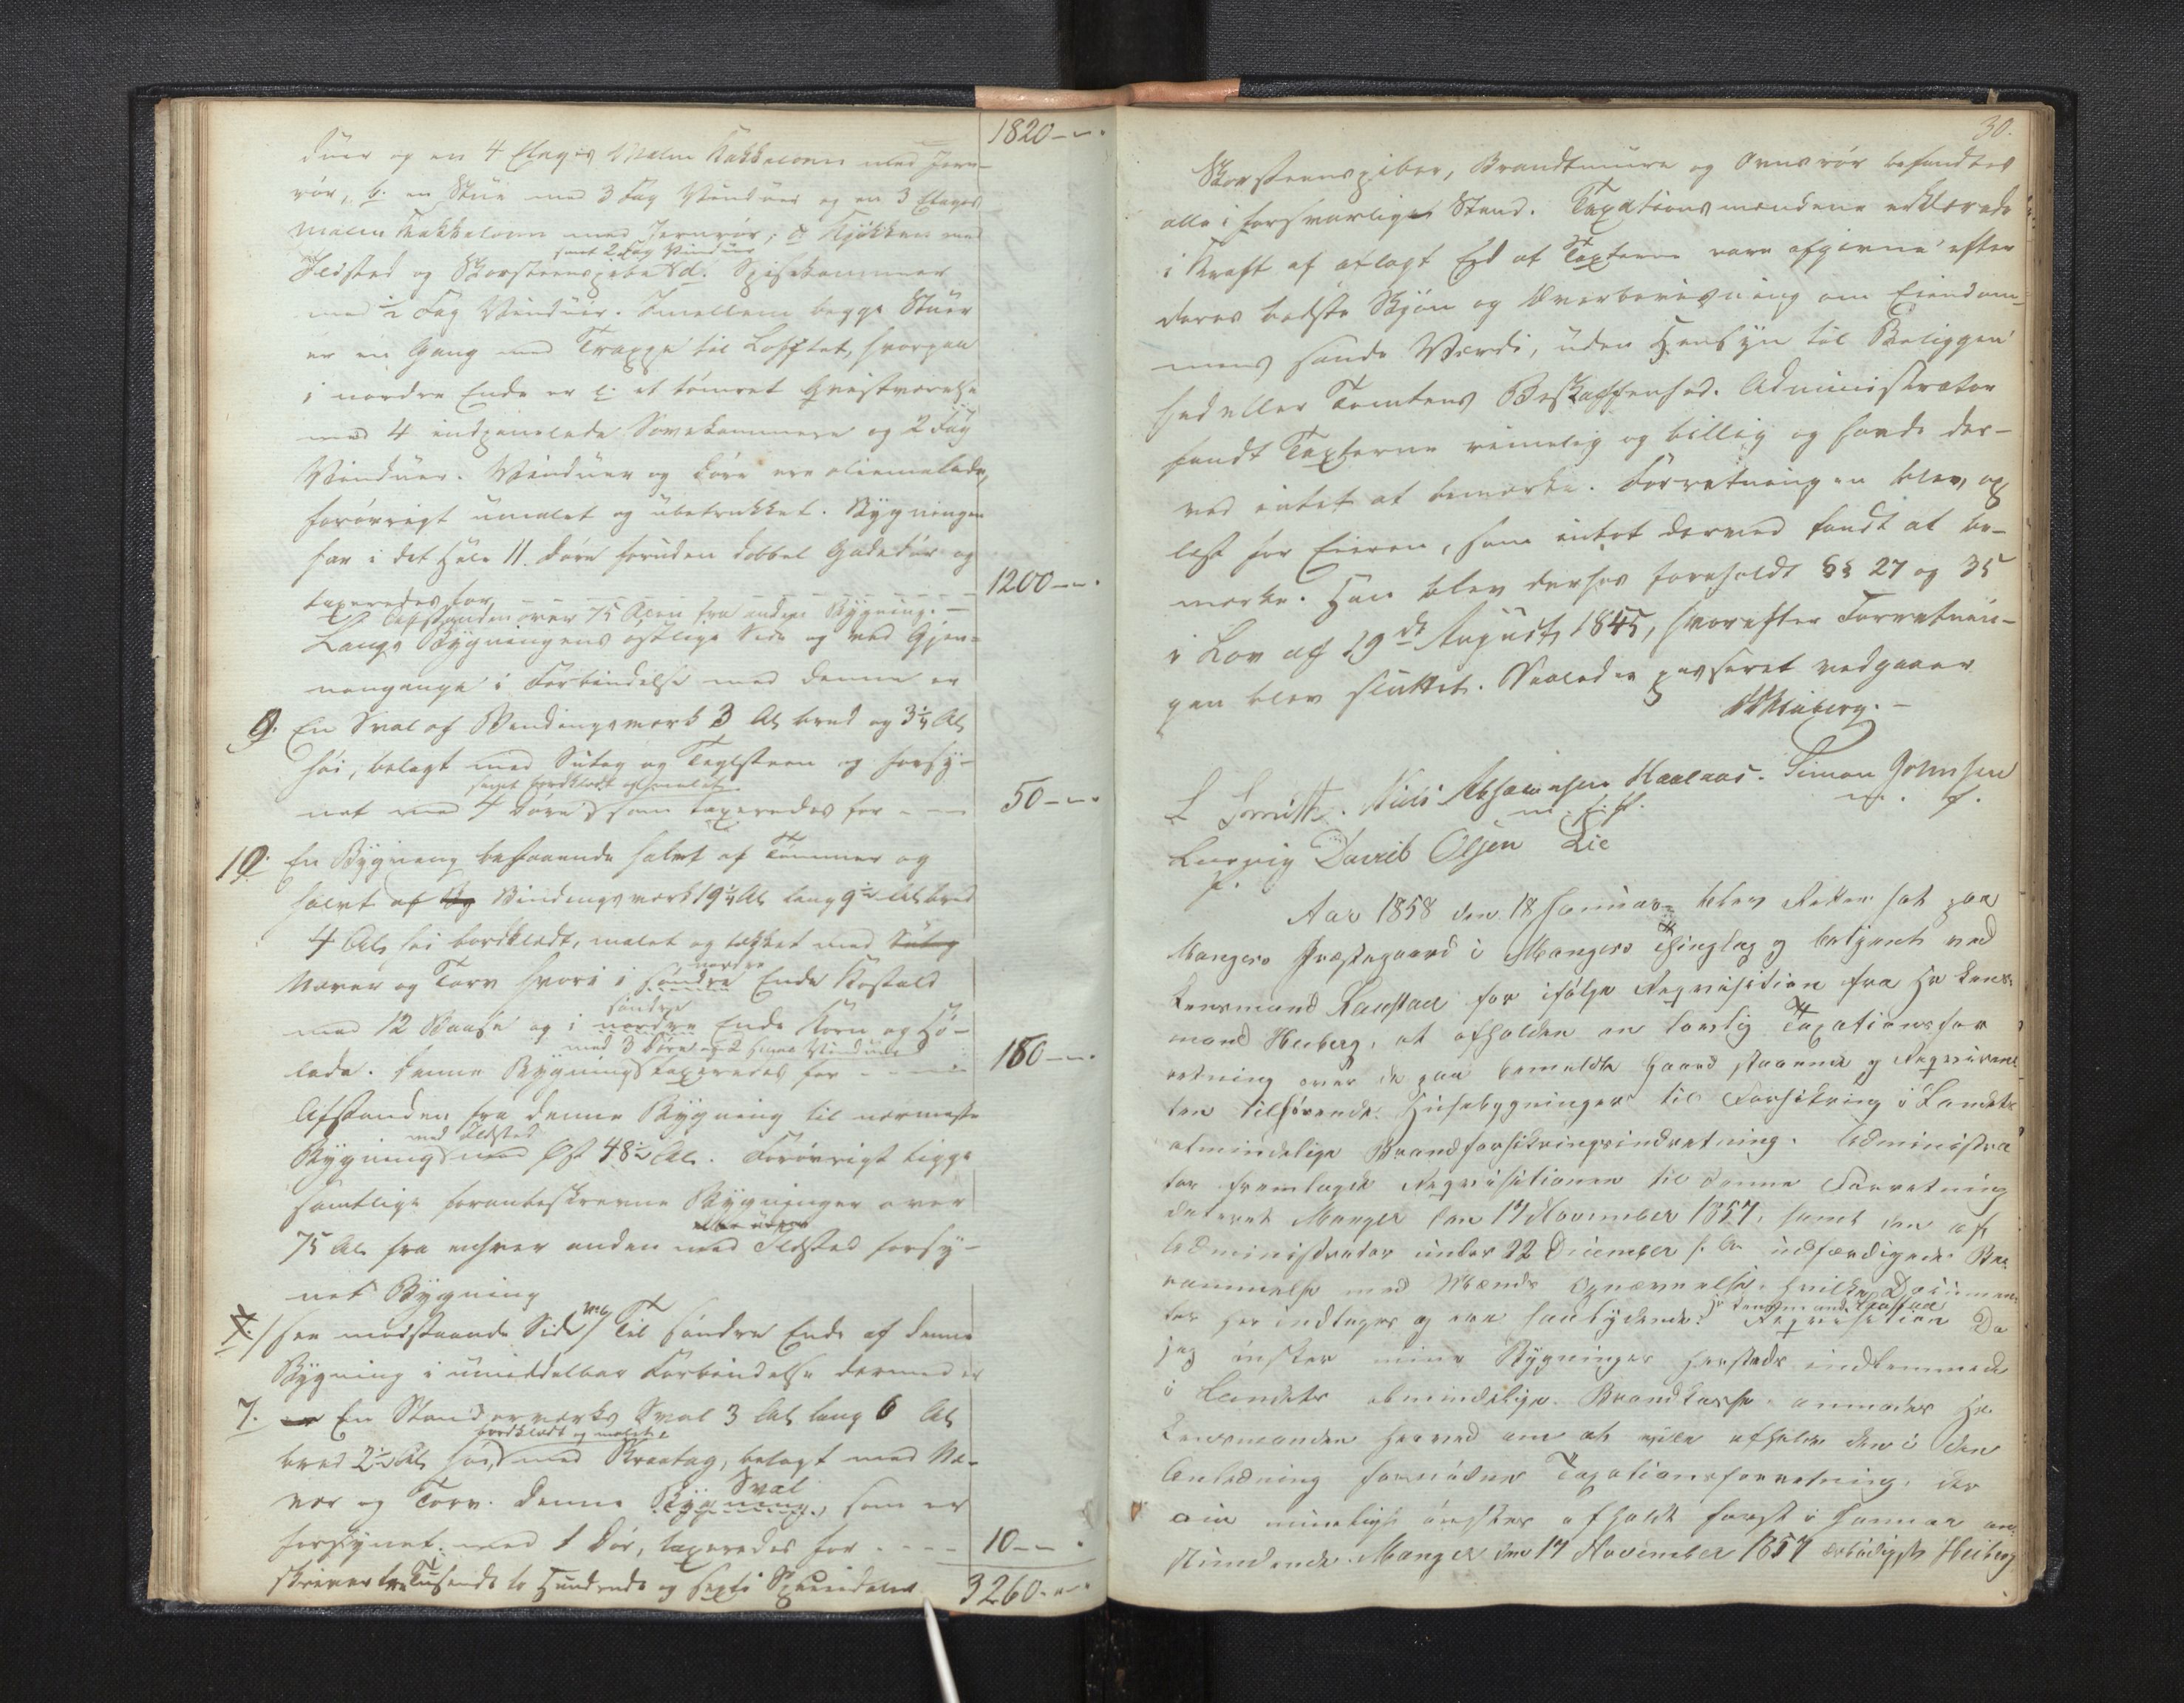 1820 - -
duer og en 4 Etages Malm Kakkelovn med Jern-
rør, b. en Stue med 3 Fag Vinduer og en 3 Etages
Malm Kakkelovn med Jernrør; c Kjøkken med
samt 2 Fag Vinduer
Ildsted og Skorsteenspibe d. Spisekammer
med ½ Fag Vinduer. Imellem begge Stuer
er en Gang med Trappe til Lofftet, hvorpaa
i nordre Ende er e. et tømret Qvistværelse
med 4 indpanelede Sovekammere og 2 Fag
Vinduer. Vinduer og Døre ere oliemalede,
forøvrigt umalet og ubetrukket. Bygningen
har i det Hele 11 Døre foruden dobbel Gadedør og
taxeredes for - - - 1200 - -
Afstanden over 75 Alen fra anden Bygning. -
Langs Bygningens østlige Side og ved Gjen-
nemgange i Forbindelse med denne er
9. En Sval af Bindingsværk 3 Al bred og 3¼ Al
høi, belagt med Sutag og Teglsteen og forsy-
samt bordklædt og malet
net med 4 Døre som taxeredes for - - 50 - -
10. En Bygning bestaaende halvt af Tømmer og
halvt af Bindingsværk 19¼ Al lang 9½ Al bred
4 Al høi bordklædt, malet og tækket med Sutag
nordre
Næver og Torv hvori i søndre Ende Kostald
søndre
med 12 Baase og i nordre Ende Korn og Hø-
med 3 Døre og 2 smaa Vinduer
lade. Denne Bygning taxeredes for - - 180 - -
Afstanden fra denne Bygning til nærmeste
med Ildsted
Bygning mod Øst 48½ Al. Forøvrigt ligge
samtlige foranbeskrevne Bygninger over
75 Al fra enhver anden med Ildsted forsy-
net Bygning
/see modstaaende Side/ Til søndre Ende af denne
Bygning i umiddelbar Forbindelse dermed er
7. En Standerværks Sval 3 Al lang 6 Al
bordklædt og malet
bred 2½ Al høi, med Skraatag, belagt med Næ-
Sval
ver og Torv. Denne Bygning, som er
forsynet med 1 Dør, taxeredes for - - - 10 - -
skriver tre Tusende to Hundrede og sexti Speciedaler 3260 - -
30.
Skorsteenspiber, Brandtmure og Ovnsrør befandtes
alle i forsvarliges Stand. Taxationsmændene erklærede
i Kraft af aflagt Eed at Taxterne vare afgivne efter
deres bedste Skjøn og Overbeviisning om Eiendom-
mens sande Værdi, uden Hensyn til Beliggen-
hed eller Tomtens Beskaffenhed. Administrator
fandt Taxterne rimelig og billig og havde der-
ved intet at bemærke. Forretningen blev op-
læst for Eieren, som intet derved fandt at be-
mærke. Han blev derhos foreholdt §§ 27 og 35
i Lov af 19de August 1845, hvorefter Forretnin-
gen blev sluttet. Saaledes passeret vedgaaer
Heiberg. -
L Smitt. Niels Absalonsen Haaleaas. Simon Johnsen
m. f. P.
Ludvig David Olsen Lie
Aar 1858 den 18 Januar blev Retten sat paa
Mangers Præstegaard i Mangers Thinglag og betjent ved
Lensmand Laastad for ifølge Reqvisition fra Hr Lens-
mand Heiberg, at afholde en lovlig Taxationsfor
retning over de paa bemeldte Gaard staaende og Reqvirenten
ten tilhørende Huusebygninger til Forsikring i Landets
almindelige Brandforsikringsindretning. Administra
tor fremlagde Reqvisitionen til denne Forretning
dateret Manger den 17 November 1857, samt den af
Administrator under 22 December s. A. udfærdigede Be-
rammelse med Mænds Opnævnelse, hvilke Documen-
Hr Lensmand Laastad
ter her indtages og ere saalydende: Reqvisition Da
jeg ønsker mine Bygninger herstæds indlemmede
i Landets almindelige Brandkasse, anmodes Hr
Lensmanden herved om at ville afholde den i den
Anledning fornødne Taxationsforretning, der
om mueligt ønskes afholdt først i Januar an-
stundende. Manger den 17 November 1857 ærbødigst Heiberg